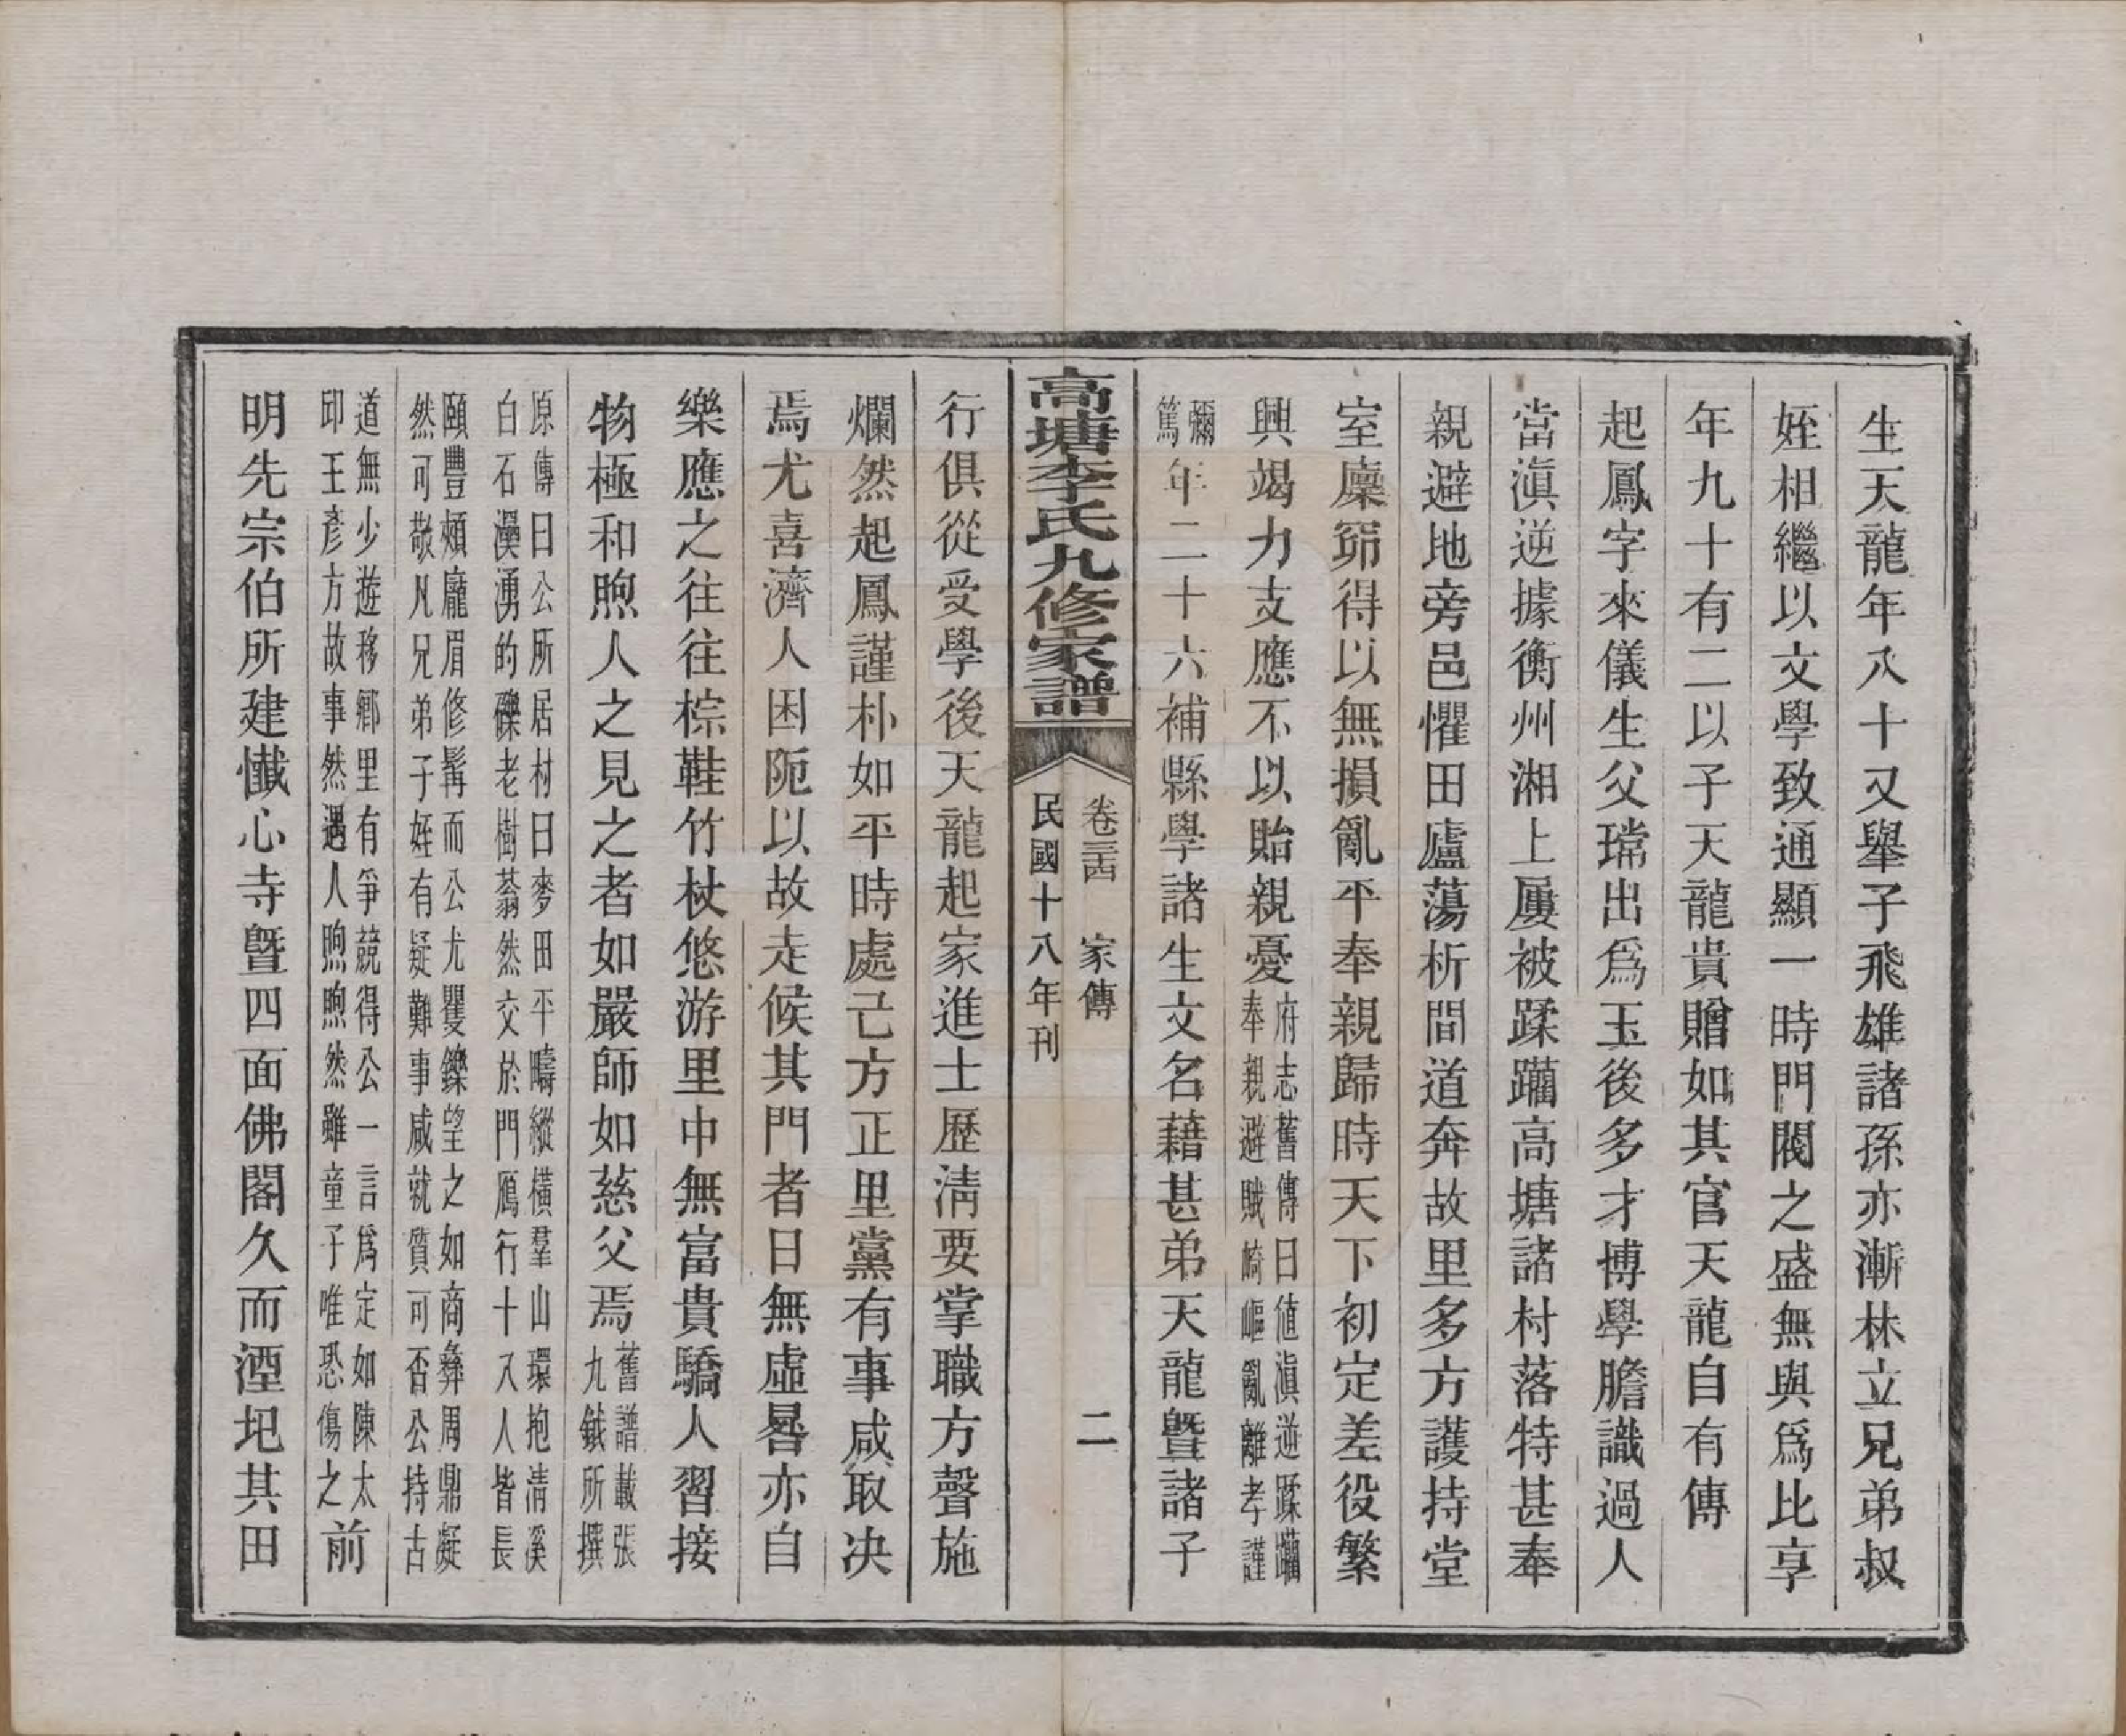 生天龍年八十又舉子飛雄諸孫亦漸林立兄弟叔
姪相繼以文學致通顯一時門閥之盛無與爲比享
年九十有二以子天龍貴贈如其官天龍自有傳
起鳳字來儀生父璫出爲玉後多才博學膽識過人
當滇逆據衡州湘上屢被蹂躪高塘諸村落特甚奉
親避地旁邑懼田廬蕩析間道奔故里多方護持堂
室廩窌得以無損亂平奉親歸時天下初定差役繁
興竭力支應不以貽親憂
府志舊傳曰値滇逆蹂躪
奉親避賊崎嶇亂離孝謹
彌
篤
年二十六補縣學諸生文名藉甚弟天龍曁諸子
高塘李氏九修家譜
卷三四 家傳 二
民國十八年刊
行俱從受學後天龍起家進士歷淸要掌職方聲施
爛然起鳳謹朴如平時處己方正里黨有事咸取决
焉尤喜濟人困阨以故走候其門者日無虛晷亦自
樂應之往往棕鞋竹杖悠游里中無富貴驕人習接
物極和煦人之見之者如嚴師如慈父焉
舊譜載張
九鉞所撰
原傳曰公所居村曰麥田平疇縱橫羣山環抱清溪
白石瀠湧的礫老樹蓊然交於門鴈行十八人皆長
頤豐頰龐眉修髯而公尤矍鑠望之如商彝周鼎凝
然可敬凡兄弟子姪有疑難事咸就質可否公持古
道無少遊移鄉里有爭競得公一言爲定如陳太
邱王彥方故事然遇人煦煦然雖童子唯恐傷之
前
明先宗伯所建懺心寺曁四面佛閣久而湮圯其田